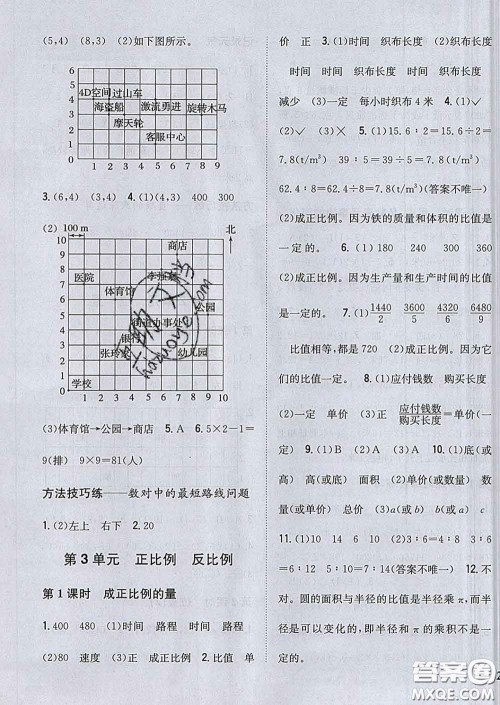 (5,4) (8,3) (2)如下图所示。
6
5
4D空间 过山车
4
海盗船 激流勇进 旋转木马
3
摩天轮
2
客服中心
1
0 1 2 3 4 5 6 7 8 9
3.(6,4) (3,4) 4.(1)(4,3) 400 300
(2) 100 m 北
10
商店
9
8
医院
7
体育馆
6
公园
5
街道办事处
4
银行
3
张玲家 幼儿园
2
1
学校
0 1 2 3 4 5 6 7 8 9 10
(3)体育馆→公园→商店 5.A 6.5×2-1=
9(排) 9×9=81(人)
方法技巧练——数对中的最短路线问题
1.(2)左上 右下 2.20
第3单元 正比例 反比例
第1课时 成正比例的量
1.400 480 (1)时间 路程 时间 路程
(2)80 速度 (3)正 成正比例 2.比值 单
价 正 3.(1)时间 织布长度 (2)织布长度
时间 时间 织布长度 时间 织布长度
减少 (3)一定 每小时织布4米 4.(1)√
(2)× (3)√ 5.(1)15.6÷2=
7.8(t/m³) 39÷5=7.8(t/m³)
62.4÷8=7.8(t/m³)(答案不唯一)
(2)成正比例。因为铁的质量和体积的比值是
一定的。 6.(1)180 240 300 360
(2)成正比例。因为生产量和生产时间的比值
是一定的。 7.(1)1440/2 3600/5 4320/6 6480/9
比值相等,都是720 (2)成正比例。因为它
们的比值一定。 8.(1)应付钱数 购买长度
(2)一定 单价 (3)正 应付钱数/购买长度=单价(一
定) 9.(1)B (2)A (3)A 10.(1)底(或
高) 高(或底) 面积 (2)单价(或数量) 数
量(或单价) 总价 (3)a(或c) c(或a) b
11.(1)10 (2)8 2(答案不唯一) 12.不
对。圆的面积与半径的比值是半径乘π,而半
径是可以变化的,即圆的面积和半径的比值不
是一定的。
答案圈
MXQE.COM